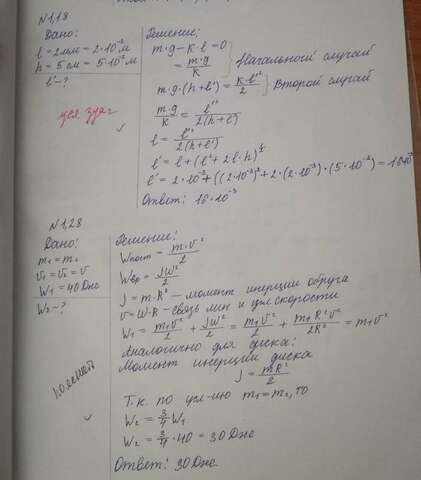 N1,18
Дано:
l = 2мм = 2·10⁻³м
h = 5 см = 5·10⁻²м
l' - ?
Решение:
m·g - k·l = 0
= m·g/k } Начальный случай
m·g·(h+l') = k·l'²/2 } Второй случай
m·g/k = l'²/2(h+l')
l = l'²/2(h+l')
l' = l + (l² + 2·l·h)^½
l' = 2·10⁻³ + ((2·10⁻³)² + 2·(2·10⁻³)·(5·10⁻²) = 16·10⁻³
Ответ: 16·10⁻³
N1,28
Дано:
m₁ = m₂
v₁ = v₂ = v
W₁ = 40 Дж
W₂ - ?
Решение:
Wпост = m·v²/2
Wвр = JW²/2
J = m·R² - момент инерции обруча
v = W·R - связь лин и угл скорости
W₁ = m₁v²/2 + JW²/2 = m₁v²/2 + m₁R²v²/2R² = m₁v²
Аналогично для диска:
Момент инерции диска
J = mR²/2
Т.к. по усл-ию m₁ = m₂, то
W₂ = 3/4 W₁
W₂ = 3/4 · 40 = 30 Дж
Ответ: 30 Дж.